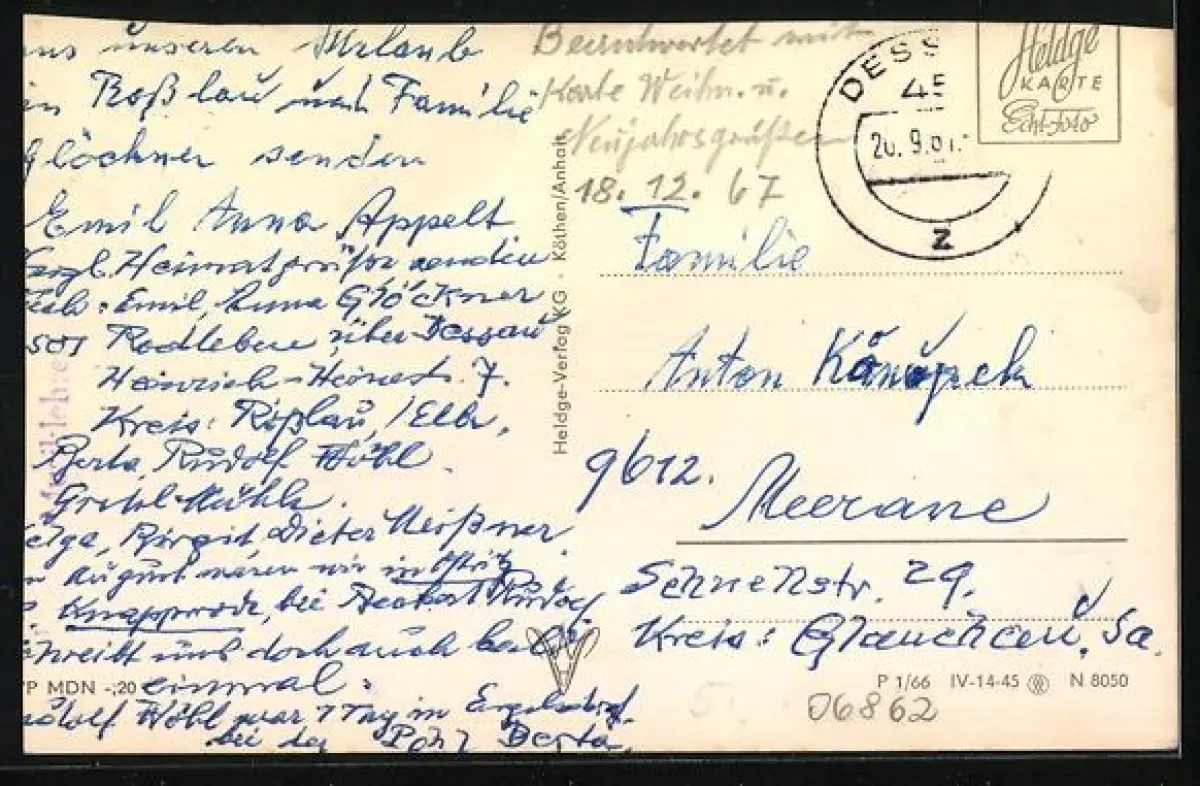 aus unseren Urlaub
in Roßlau und Familie
Glöckner senden
Emil Anna Appelt
Heimatgrüße senden
Emil, Anna Glöckner
4501 Rodleben über Dessau
Heinrich-Heinestr. 7.
Kreis: Roßlau, /Elbe,
Berta, Rudolf Wöhl.
Gretel Mühle.
Helga, Birgit, Dieter Meißner.
August waren wir in Ostritz
Knapprode, bei Rudolf
schreibt uns doch auch bald
einmal.
Rudolf Wöhl war 1 Tag in
bei der Berta.
MDN -,20
Beantwortet mit
Karte Weihn. u.
Neujahrsgrüßen
18. 12. 67
Heldge-Verlag KG · Köthen/Anhalt
DESS
45
20. 9.
z
Heldge
KARTE
Echt-Foto
Familie
Anton
9612. Meerane
Schnellstr. 29.
Kreis: Glauchau, Sa.
P 1/66 IV-14-45 N 8050
06862